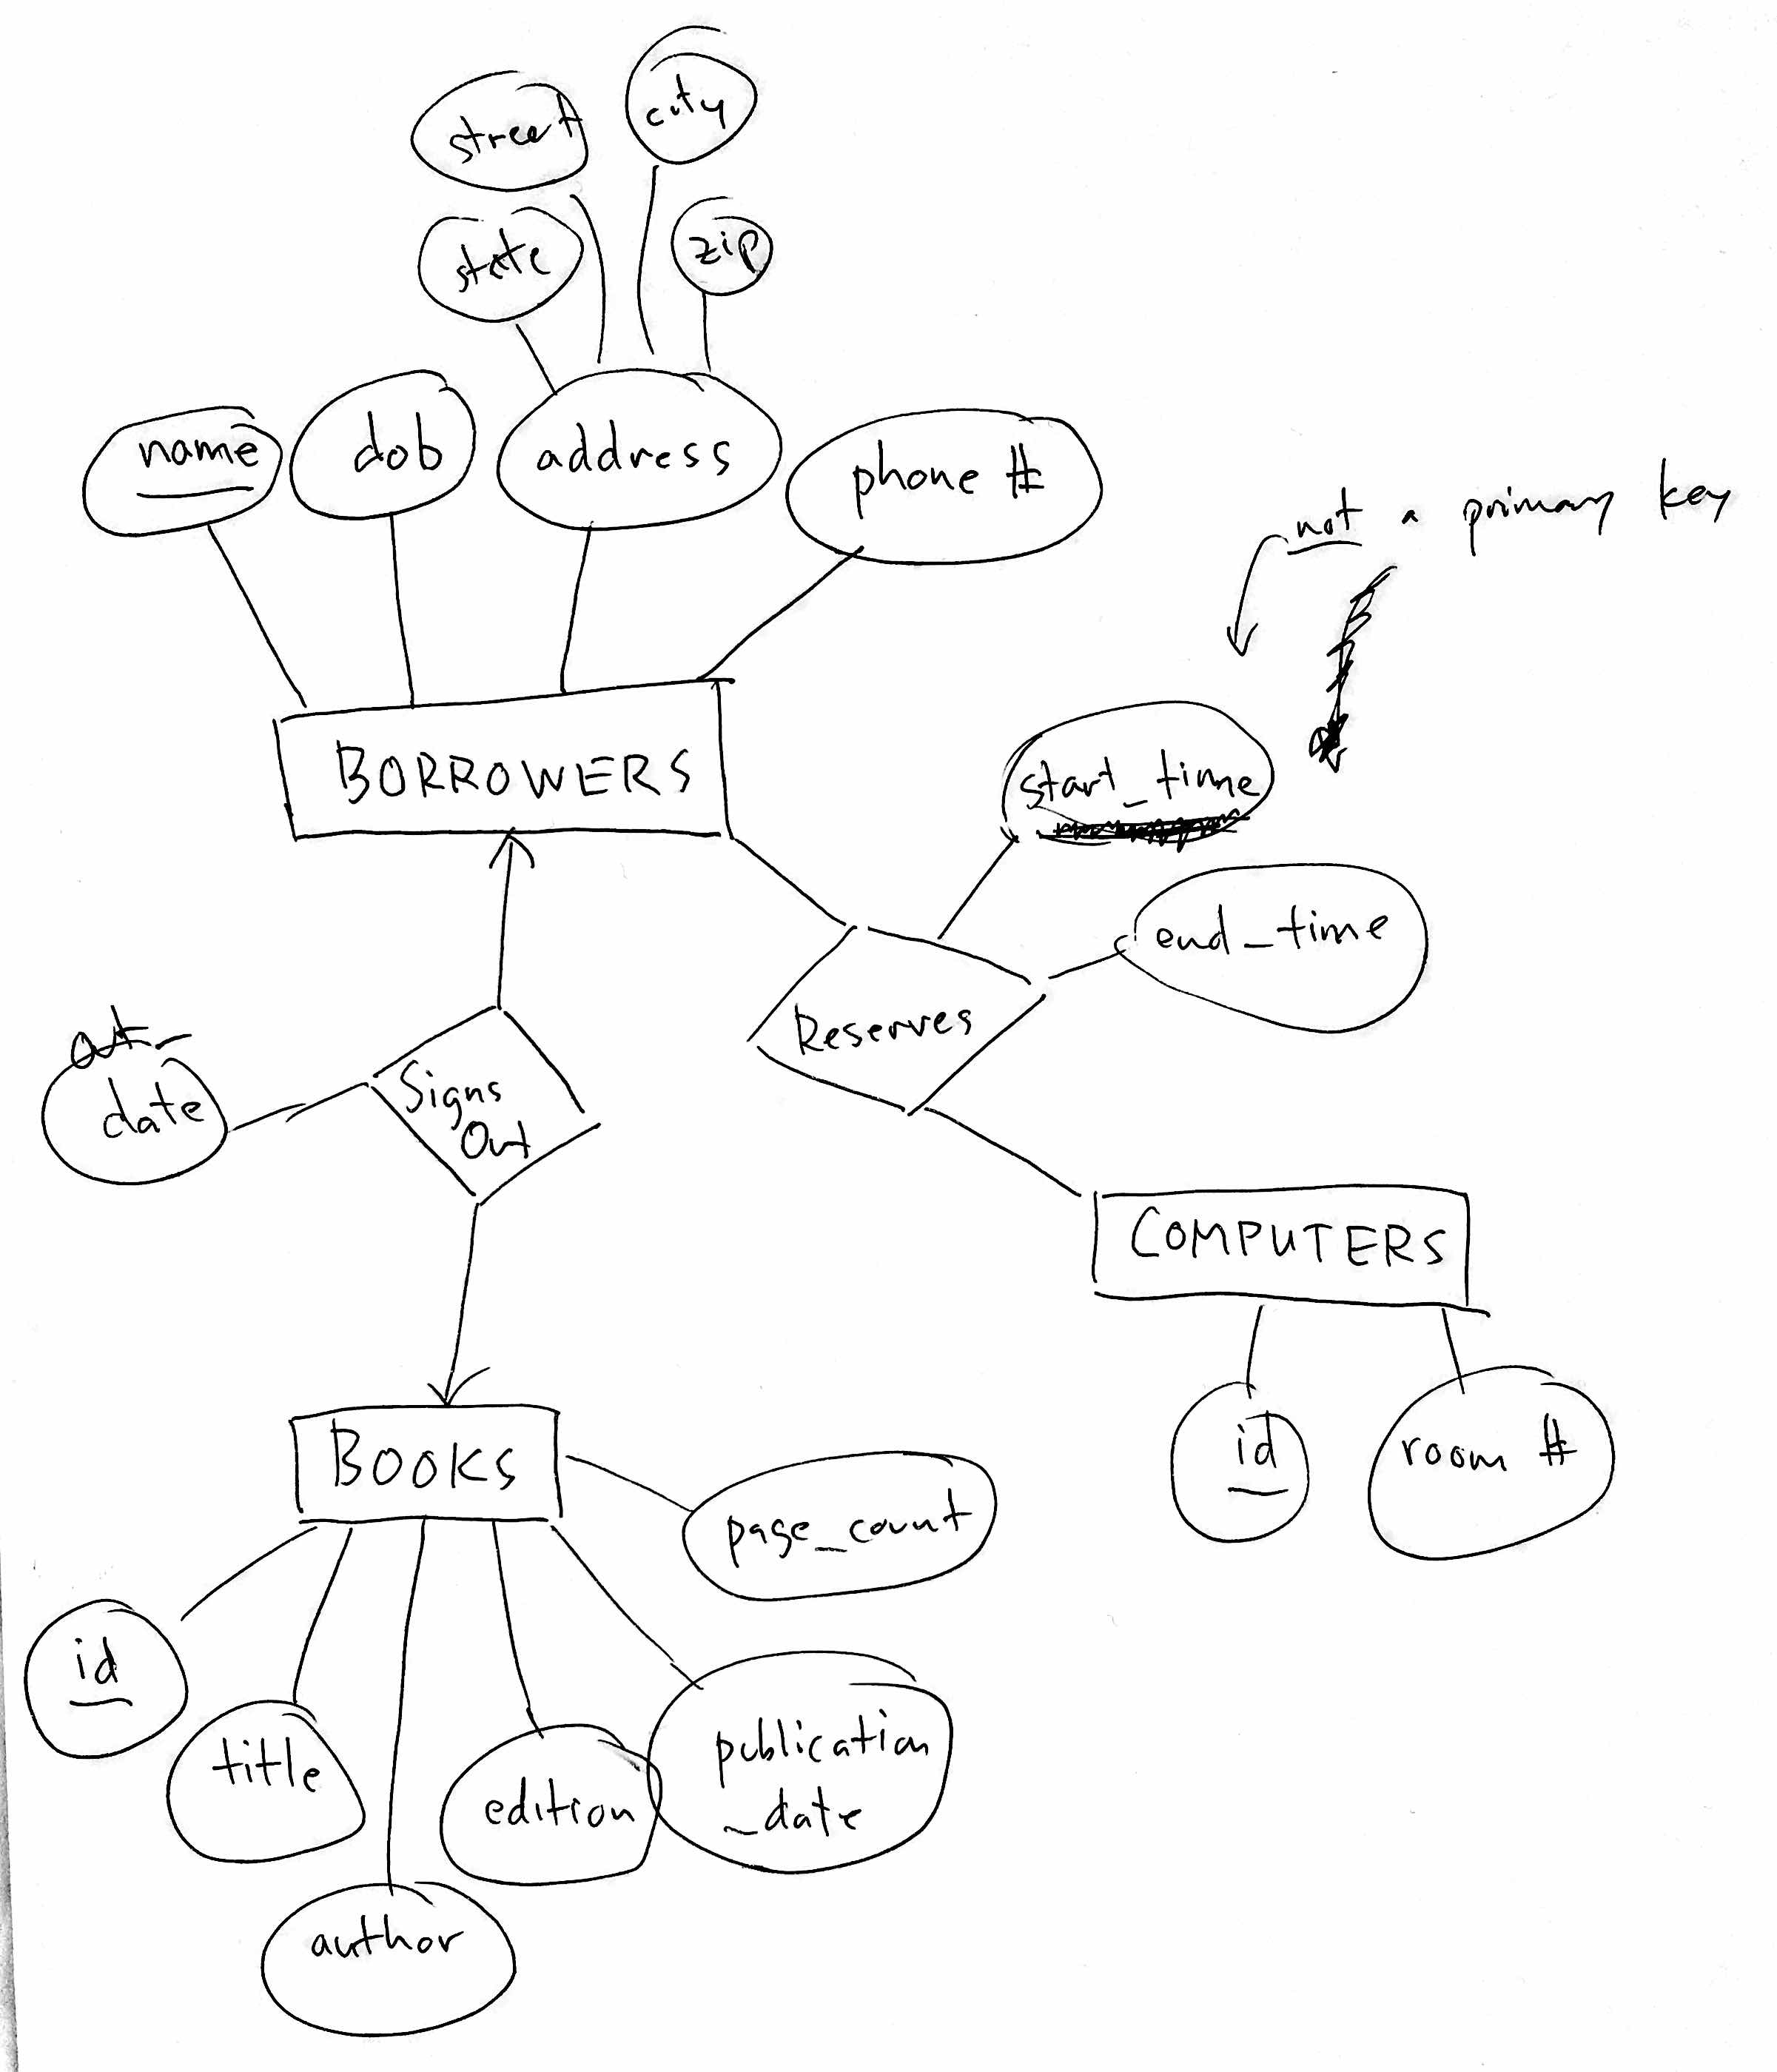 street
city
state
zip
name
dob
address
phone #
not a primary key
BORROWERS
start_time
end_time
Reserves
out_
date
Signs
Out
COMPUTERS
id
room #
BOOKS
page_count
id
title
edition
publication
_date
author